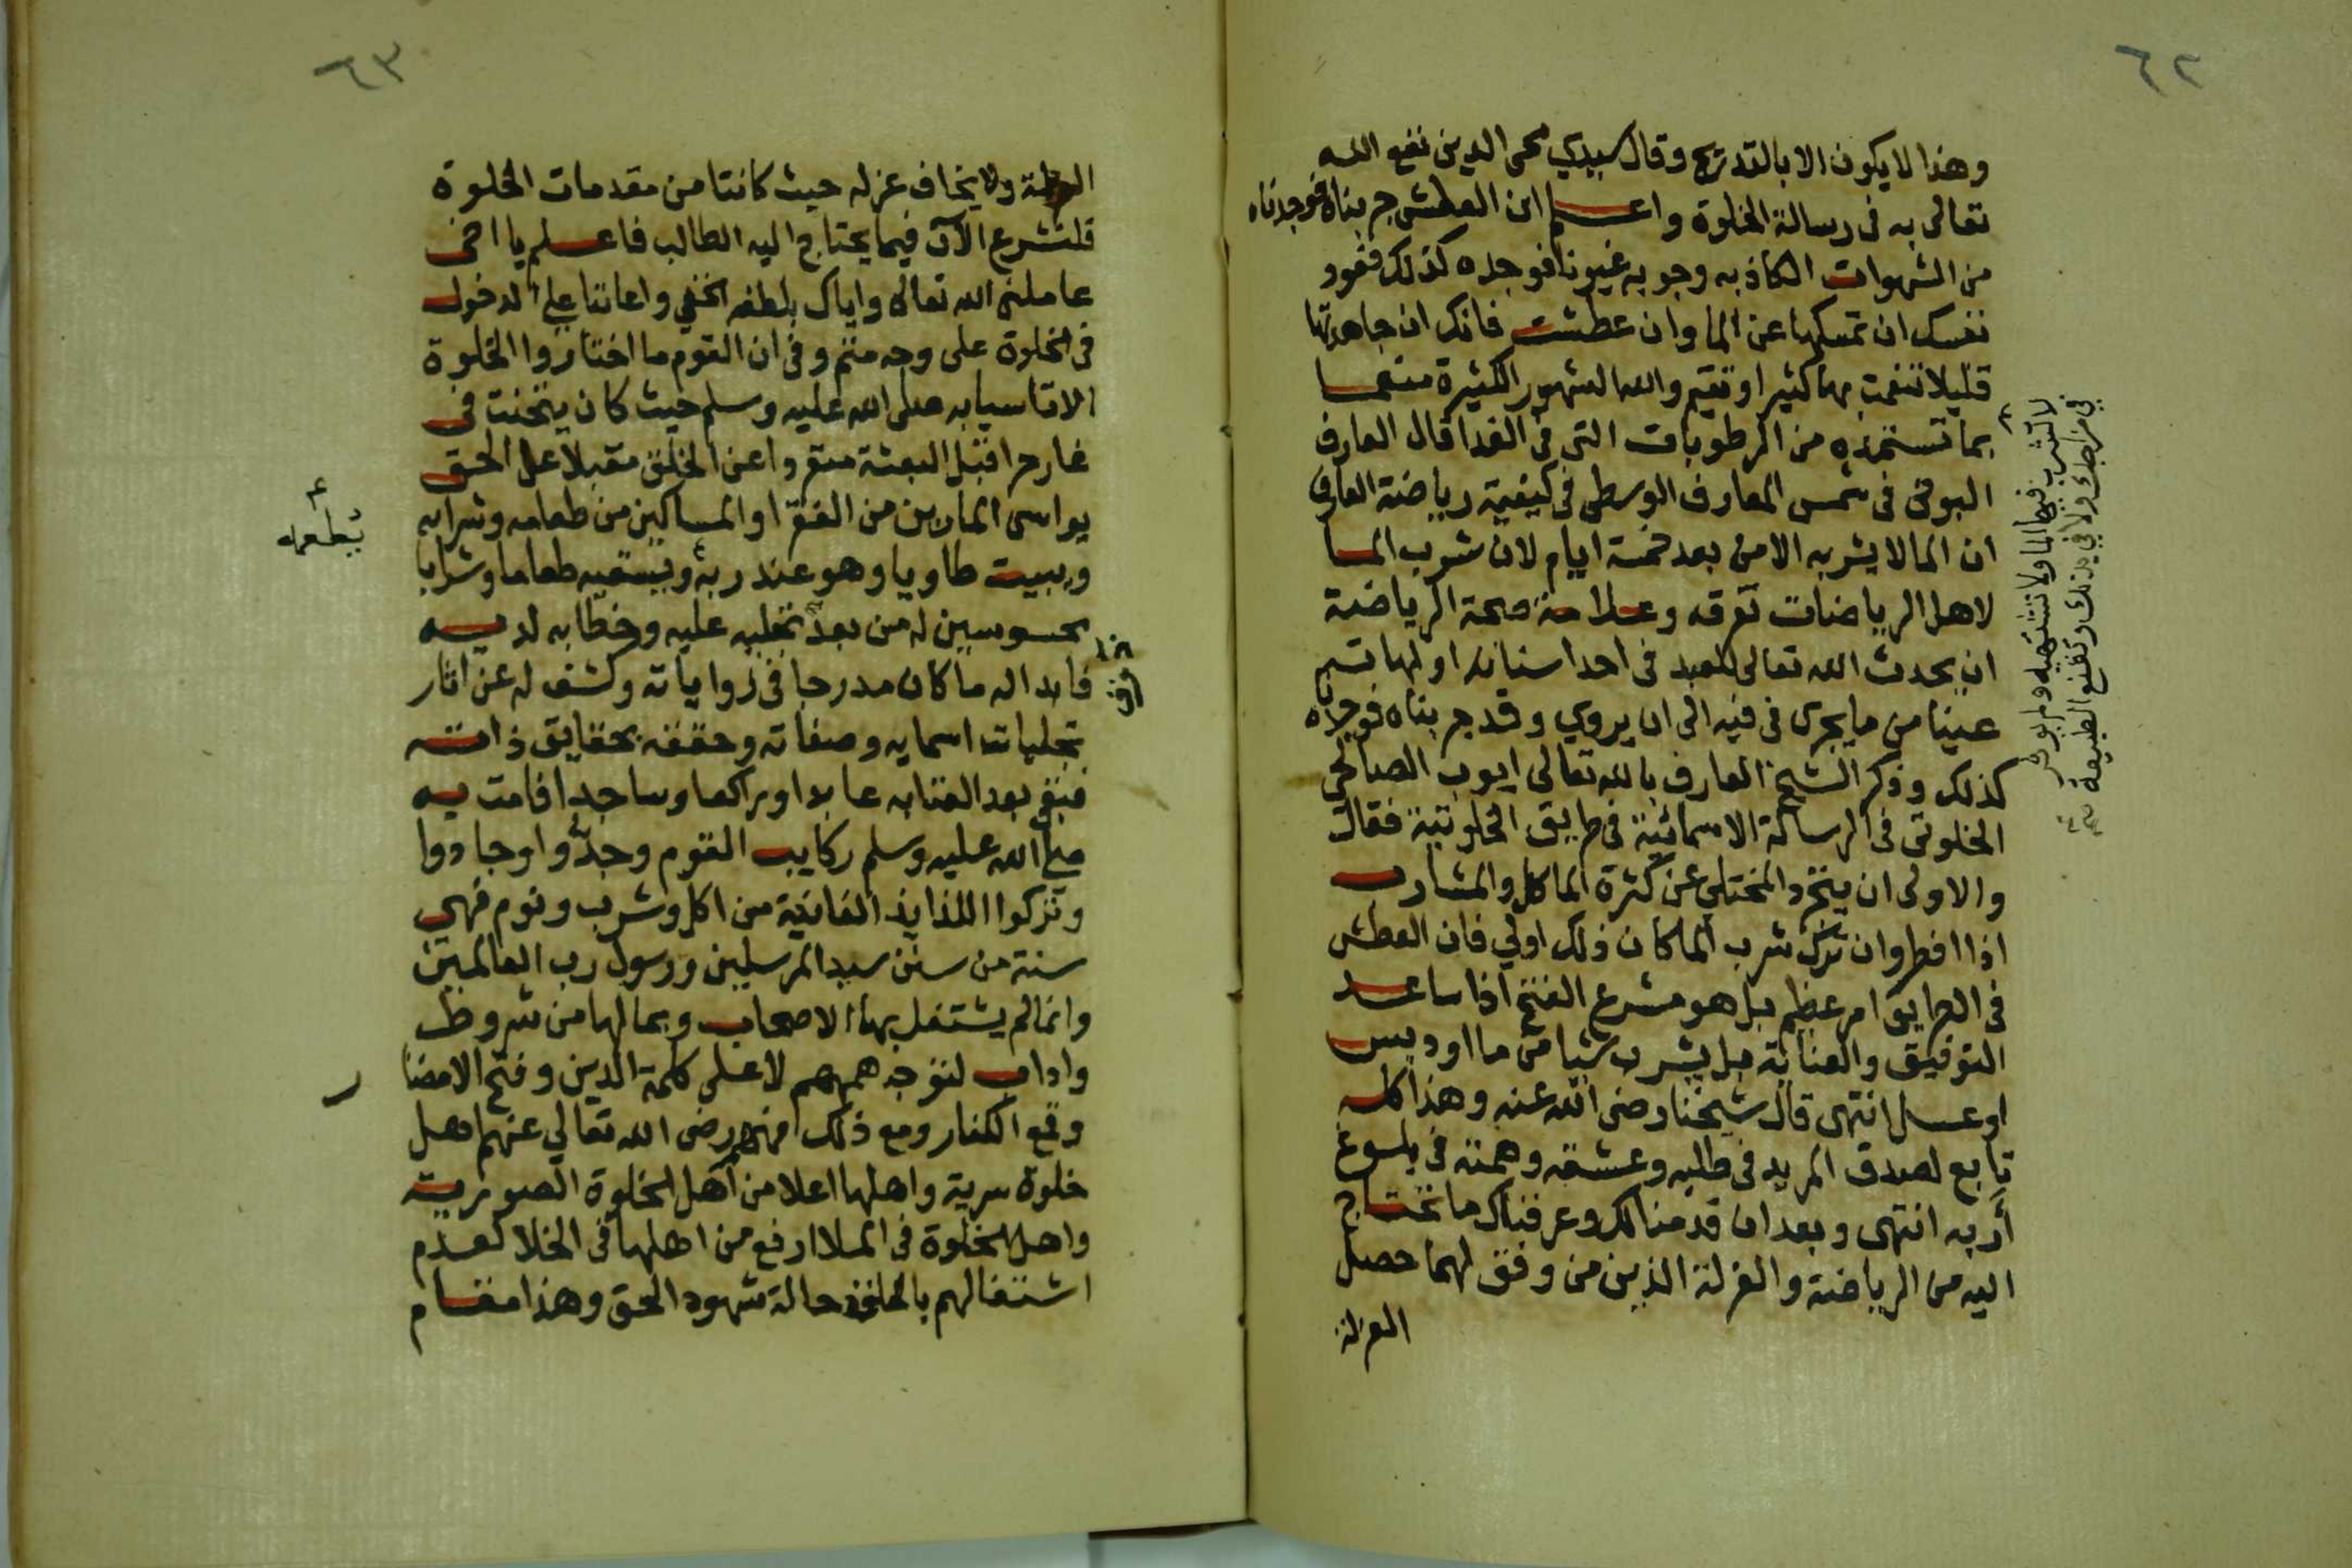 ٦٢
وهذا لا يكون الا بالتدريج وقال سيدي محى الدين نفع الله
تعالى به فى رسالة الخلوة واعلم ان العطش جربناه فوجدناه
من الشهوات الكاذبه وجربه غيرنا فوجده كذلك فعود
نفسك ان تمسكها عن الما وان عطشت فانك ان جاهدتها
قليلا تنعمت بها كثيرا وتقيم والله الشهور الكثيرة متنعما
بما تستمده من الرطوبات التى فى الغدا قال العارف
البونى فى شمس المعارف الوسطى فى كيفية رياضة العارف
ان الما لا يشربه الا من بعد خمسة ايام لان شرب الما
لاهل الرياضات تعرقه وعلامة صحة الرياضة
ان يحدث الله تعالى للعبد فى احد اسنانه او لهاته
عينا من ما يجرى فى فيه الى ان يروي وقد جربناه فوجدناه
كذلك وذكر الشيخ العارف بالله تعالى ايوب الصالحي
الخلوتى فى الرسالة الاسمائية فى طريق الخلوتية فقال
والاولى ان يتجرد المختلي عن كثرة الماكل والمشارب
اذا افطر وان ترك شرب الما كان ذلك اولي فان العطش
فى الطريق امر عظيم بل هو مشرع الفتح اذا ساعد
التوفيق والعناية بل يشرب شيا من ما او دبس
او عسل انتهى قال شيخنا رضى الله عنه وهذا كله
تابع لصدق المريد فى طلبه وعشقه وهمته فى بلوغ
أربه انتهى وبعد ان قدمنا لك وعرفناك ما تحتاج
اليه من الرياضة والعزلة الذين من وفق لهما حصل
العزلة
لا تشرب فيها الما ولا تشتهيه ولم يوثر
فى مزاجك ولا فى بدنك وتقنع الطبيعة
٦٣
ولا يخاف عزله حيث كانتا من مقدمات الخلوة
فلنشرع الآن فيما يحتاج اليه الطالب فاعلم يا اخى
عاملنى الله تعالى واياك بلطفه الخفي واعاننا على الدخول
فى الخلوة على وجه متم وفى ان القوم ما اختاروا الخلوة
الا تاسيا به صلى الله عليه وسلم حيث كان يتحنت فى
غار حرا قبل البعثة متفردا عن الخلق مقبلا على الحق
يواسى المارين من الفقرا والمساكين من طعامه وشرابه
ويبيت طاويا وهو عند ربه ويسقيه طعاما وشرابا
يطعمه
محسوسين له من بعد تجليه عليه وخطابه لديه
فابدا له ما كان مدرجا فى زواياته وكشف له عن اثار
تجليات اسمايه وصفاته وحققه بحقايق ذاته
فبقى بعد الفنابه عابدا وراكعا وساجدا فامت به
صلى الله عليه وسلم ركايب القوم وجدّوا وجادوا
وتركوا اللذايذ الفانية من اكل وشرب ونوم فهي
سنة من سنن سيد المرسلين ورسول رب العالمين
وانما لم يشتغل بها الاصحاب وبما لها من شروط
واداب لتوجه هممهم لاعلى كلمة الدين وفتح الامصار
وقمع الكفار ومع ذلك فهم رضى الله تعالي عنهم اهل
خلوة سرية واهلها اعلا من اهل الخلوة الصورية
واهل الخلوة فى الملا ارفع من اهلها فى الخلا لعدم
اشتغالهم بالخلق حالة شهود الحق وهذا مقام